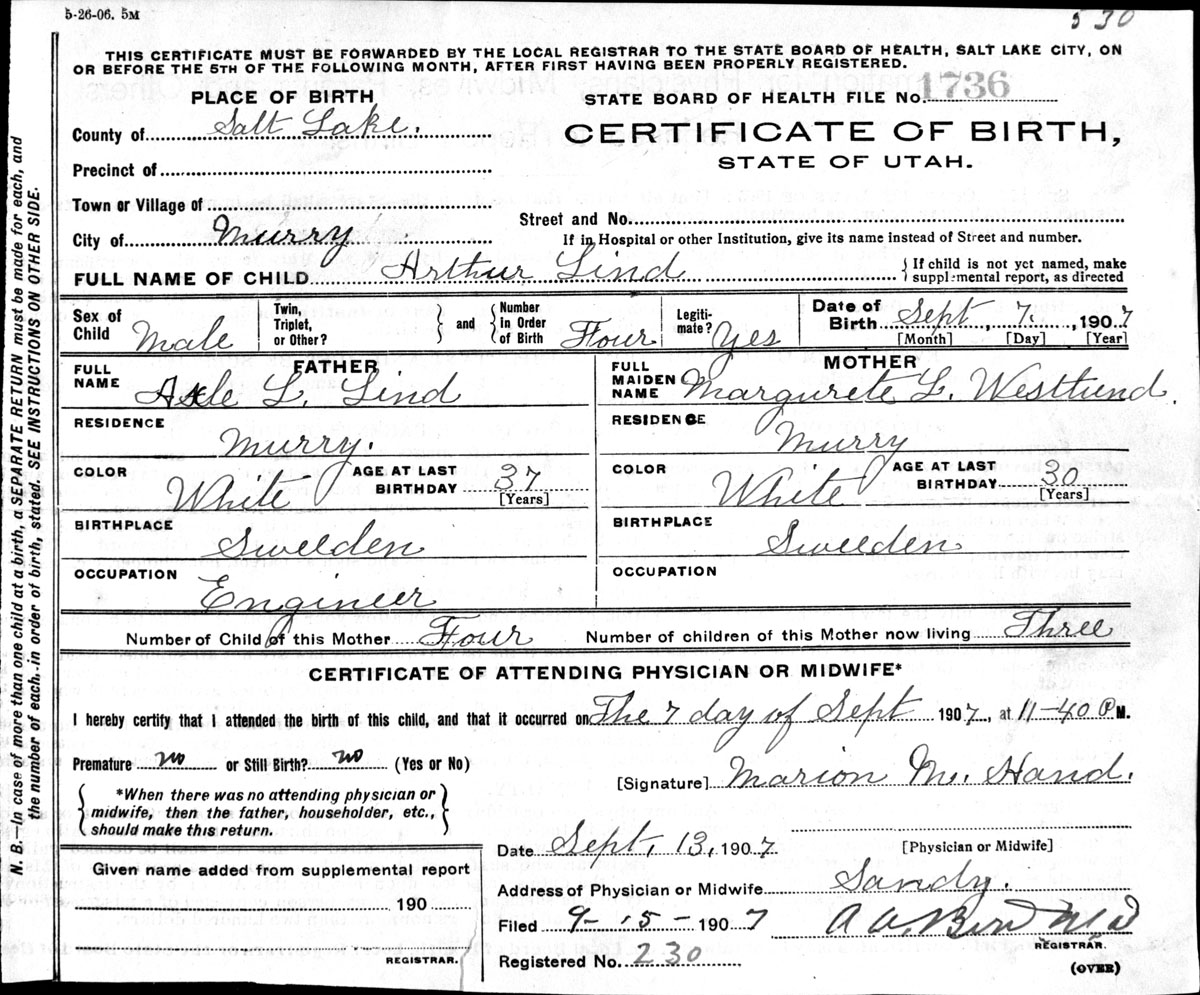 5-26-06. 5M
530
THIS CERTIFICATE MUST BE FORWARDED BY THE LOCAL REGISTRAR TO THE STATE BOARD OF HEALTH, SALT LAKE CITY, ON
OR BEFORE THE 5TH OF THE FOLLOWING MONTH, AFTER FIRST HAVING BEEN PROPERLY REGISTERED.
PLACE OF BIRTH
STATE BOARD OF HEALTH FILE NO. 1736
County of Salt Lake.
CERTIFICATE OF BIRTH,
STATE OF UTAH.
Precinct of
Town or Village of
Street and No.
City of Murry
If in Hospital or other Institution, give its name instead of Street and number.
FULL NAME OF CHILD Arthur Lind
{If child is not yet named, make
supplemental report, as directed
Sex of Child Male
Twin, Triplet, or Other? } and {Number in Order of Birth Four
Legitimate? Yes
Date of Birth Sept, 7., 1907
[Month] [Day] [Year]
FATHER
FULL NAME Axle L. Lind
MOTHER
FULL MAIDEN NAME Margurete L. Westlund.
RESIDENCE Murry.
RESIDENCE Murry
COLOR White AGE AT LAST BIRTHDAY 37 [Years]
COLOR White AGE AT LAST BIRTHDAY 30 [Years]
BIRTHPLACE Sweeden
BIRTHPLACE Sweeden
OCCUPATION Engineer
OCCUPATION
Number of Child of this Mother Four Number of children of this Mother now living Three
CERTIFICATE OF ATTENDING PHYSICIAN OR MIDWIFE*
I hereby certify that I attended the birth of this child, and that it occurred on The 7 day of Sept 1907, at 11-40 P M.
Premature no or Still Birth? no (Yes or No)
[Signature] Marion M. Hand.
{*When there was no attending physician or
midwife, then the father, householder, etc.,
should make this return.}
Date Sept, 13, 1907.
[Physician or Midwife]
Given name added from supplemental report
190
REGISTRAR.
Address of Physician or Midwife Sandy.
Filed 9-15-1907
REGISTRAR.
Registered No. 230
(OVER)
N. B.—In case of more than one child at a birth, a SEPARATE RETURN must be made for each, and
the number of each in order of birth, stated. SEE INSTRUCTIONS ON OTHER SIDE.